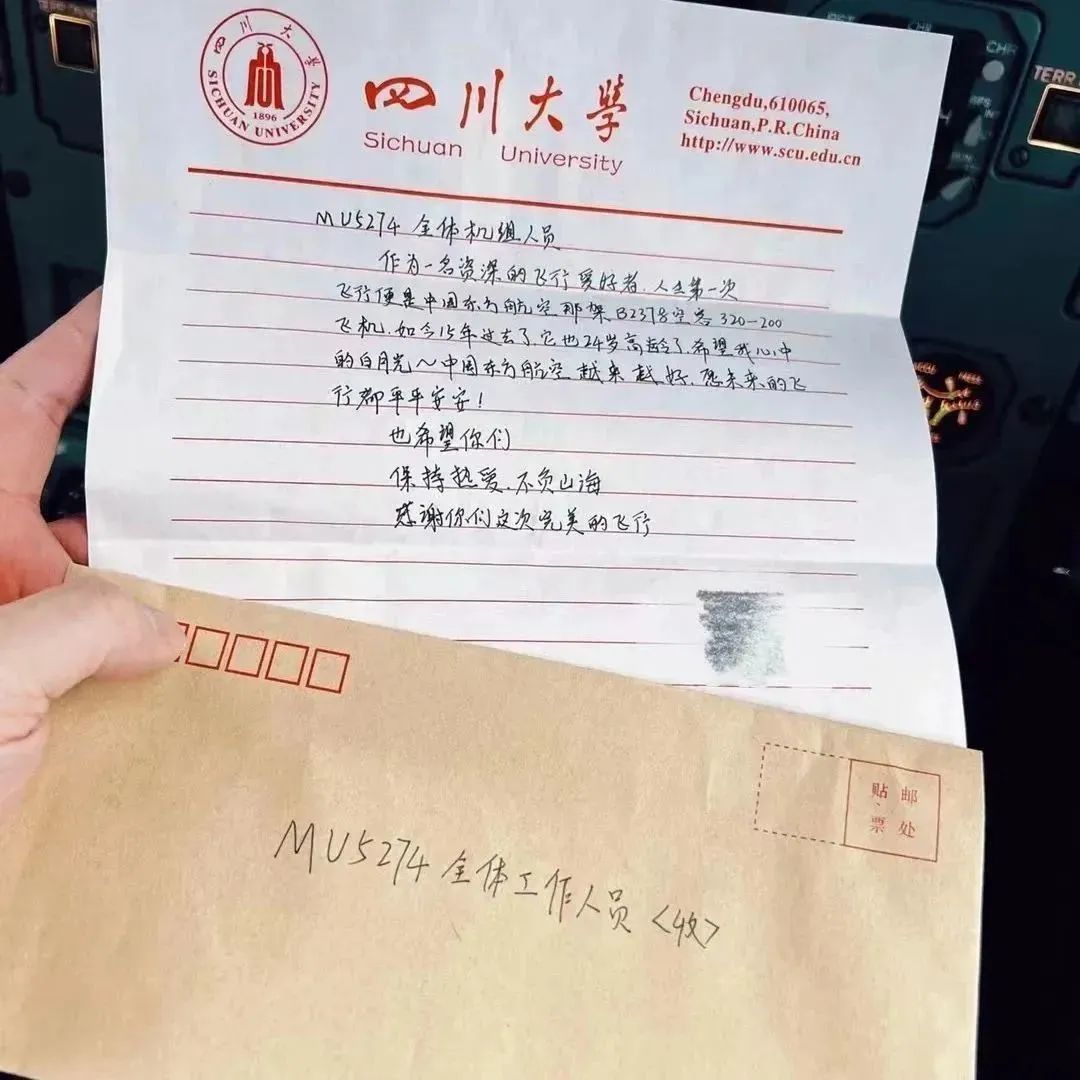 四川大学
SICHUAN UNIVERSITY
1896
四川大學
Sichuan University
Chengdu,610065,
Sichuan,P.R.China
http://www.scu.edu.cn
MU5274 全体机组人员
作为一名资深的飞行爱好者,人生第一次
飞行便是中国东方航空那架B2378空客320-200
飞机,如今15年过去了,它也24岁高龄了,希望我心中
的白月光~中国东方航空越来越好,愿未来的飞
行都平平安安!
也希望你们
保持热爱,不负山海
感谢你们这次完美的飞行
贴邮
票处
MU5274 全体工作人员<收>
TERR
CHR